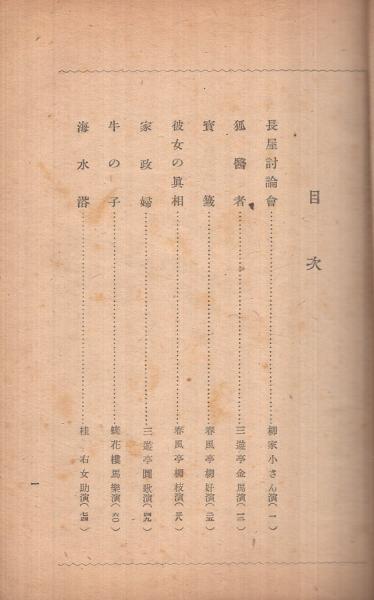 目次
長屋討論會……………柳家小さん演(一)
狐醫者……………三遊亭金馬演(一三)
寳籤……………春風亭柳好演(二五)
彼女の眞相……………春風亭柳枝演(三八)
家政婦……………三遊亭圓歌演(四九)
牛の子……………蝶花樓馬樂演(六〇)
海水浴……………桂右女助演(七四)
一